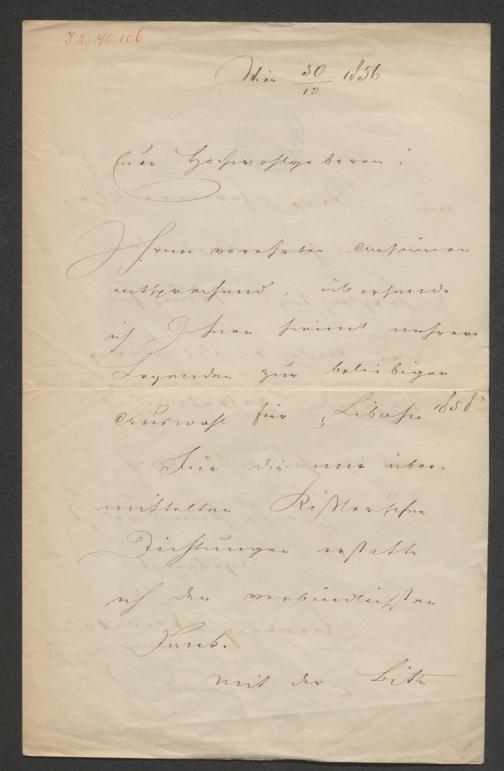 I.N. 40.106
Wien 30/12 1856
Euer Hochwohlgeboren!
Ihrem verehrten Ansinnen
entsprechend, übersende
ich Ihnen hiemit mehrere
Legenden zur beliebigen
Auswahl für „Libussa 1858“
Für die mir über-
mittelten Rößler'schen
Dichtungen erstatte
ich den verbindlichsten
Dank.
Mit der Bitte